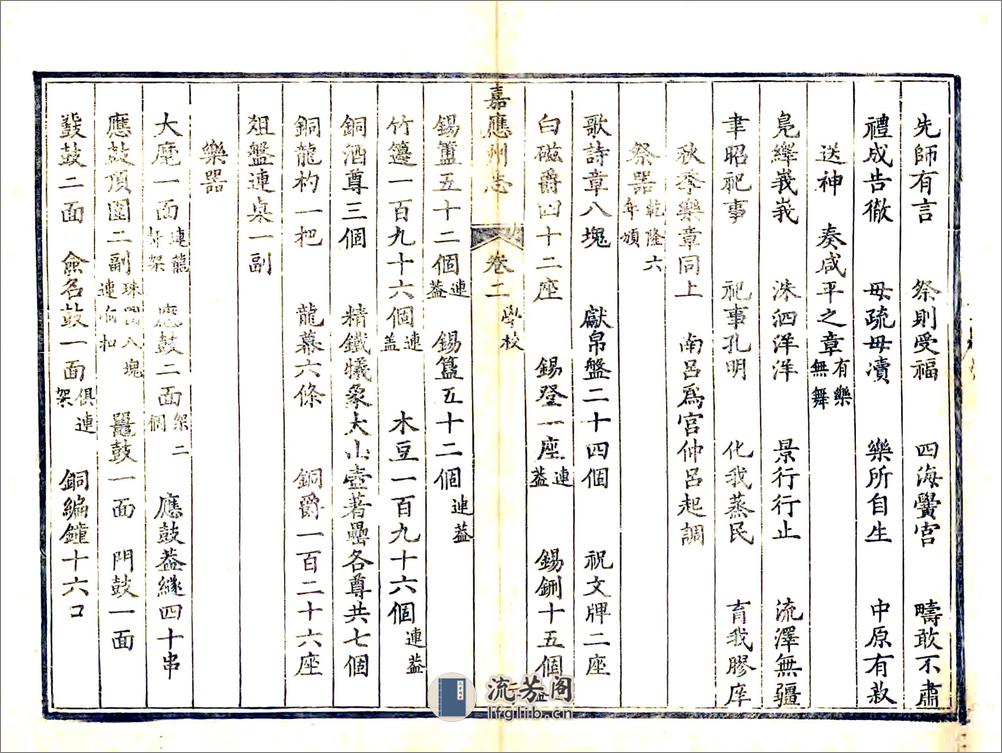 先師有言　祭則受福　四海黌宮　疇敢不肅
禮成告徹　毋疏毋瀆　樂所自生　中原有菽
送神　奏咸平之章有樂無舞
鳧繹峩峩　洙泗洋洋　景行行止　流澤無疆
聿昭祀事　祀事孔明　化我蒸民　育我膠庠
秋季樂章同上　南呂爲宮仲呂起調
祭器乾隆六年頒
歌詩章八塊　獻帛盤二十四個　祝文牌二座
白磁爵四十二座　錫登一座連葢　錫鉶十五個
嘉應州志　卷二　學校
錫簠五十二個連葢　錫簋五十二個連葢
竹籩一百九十六個連葢　木豆一百九十六個連葢
銅酒尊三個　精鐵犧象大山壺著罍各尊共七個
銅龍杓一把　龍幕六條　銅爵一百二十六座
俎盤連桌一副
樂器
大麾一面連龍架　應鼓二面架二個　應鼓葢繸四十串
應鼓頂圍二副珠四八塊連扣　鼉鼓一面　門鼓一面
鼗鼓二面　僉名鼓一面俱連架　銅編鐘十六口
流芳阁
lfglib.cn